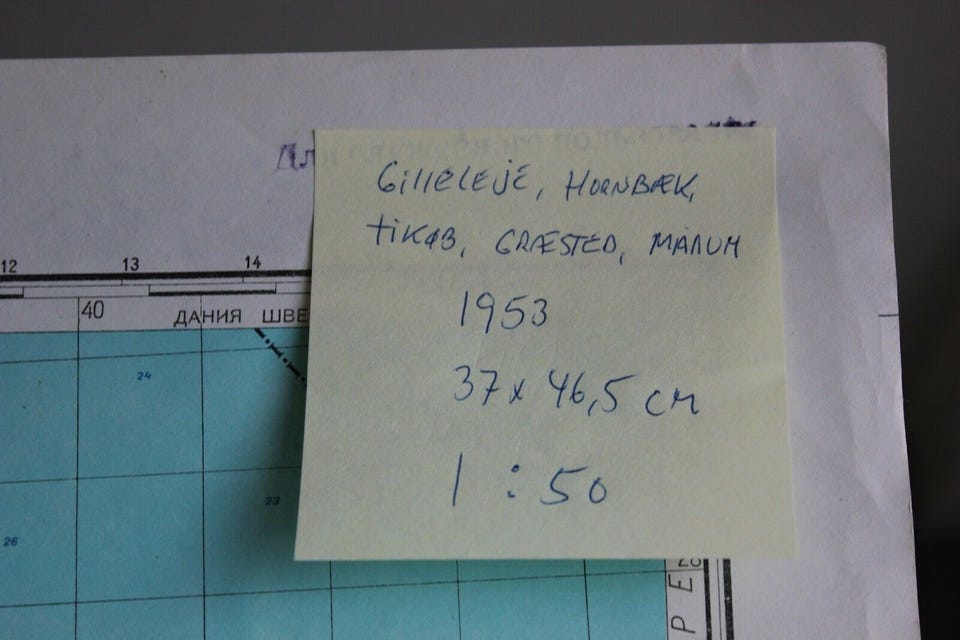 Gilleleje, Hornbæk,
Tikøb, Græsted, Mårum
1953
37 x 46,5 cm
1 : 50
12 13 14
40 ДАНИЯ ШВЕ
24
23
26
Р Е